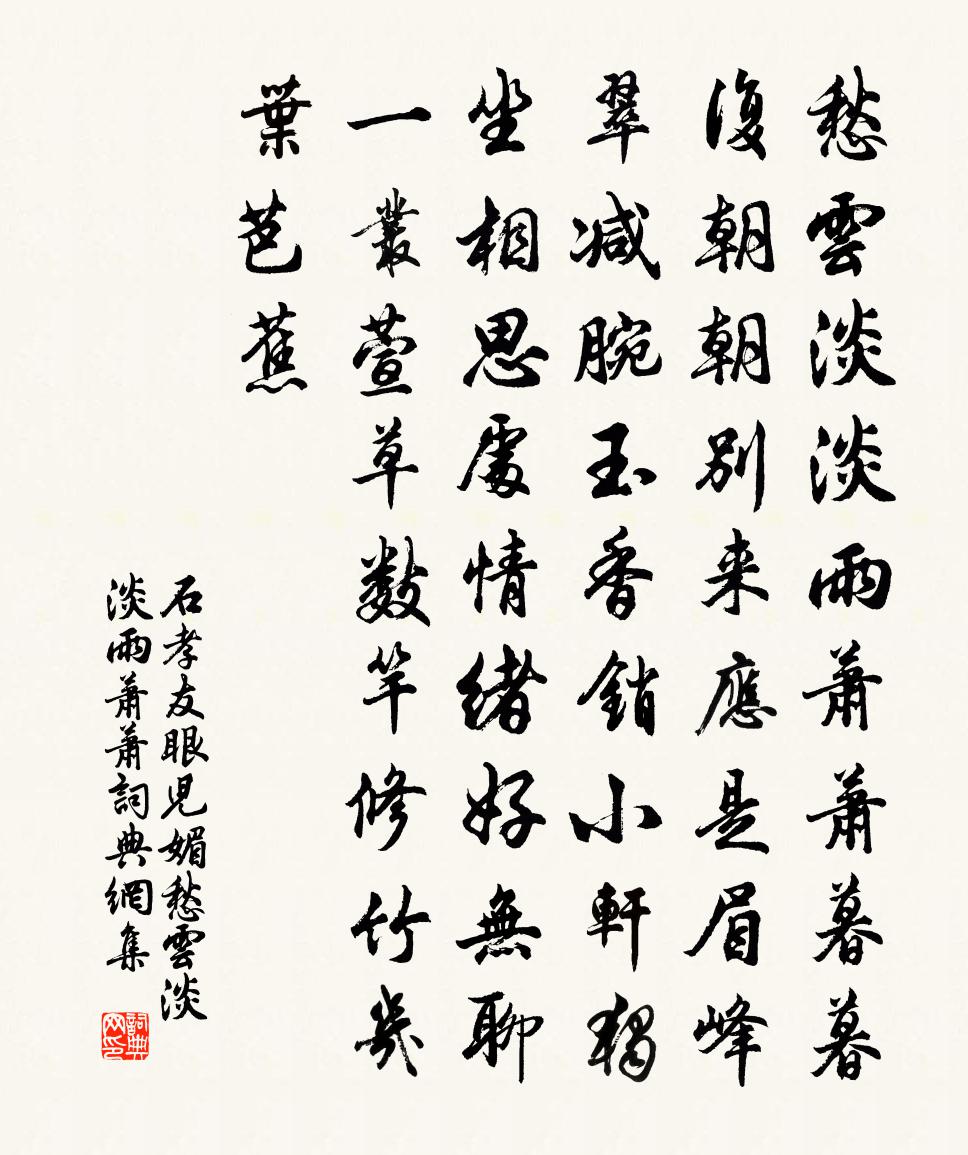 愁雲淡淡雨蕭蕭暮暮
復朝朝別来應是眉峰
翠减腕玉香銷小軒獨
坐相思處情緒好無聊
一叢萱草數竿修竹幾
葉芭蕉
石孝友眼児媚愁雲淡
淡雨蕭蕭詞典網集
詞典
网印